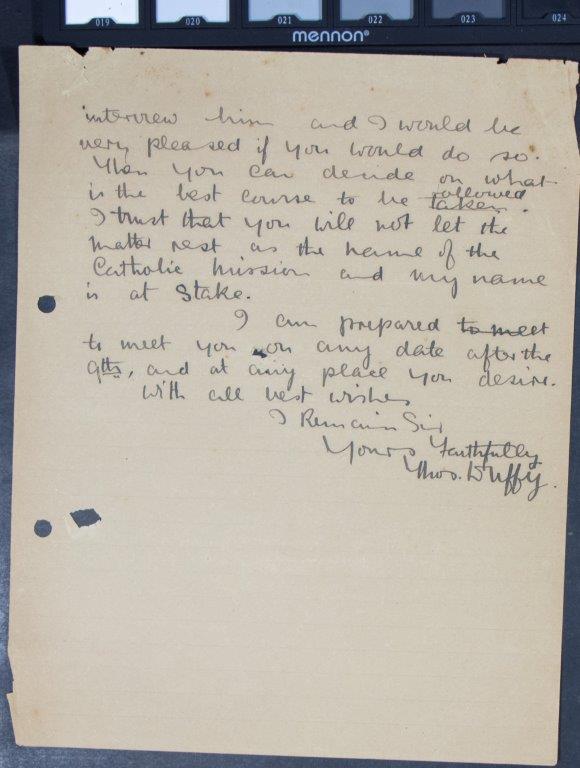 019 020 021 022 023 024
mennon®
interview him and I would be
very pleased if you would do so.
Then you can decide on what
is the best course to be taken followed.
I trust that you will not let the
matter rest as the name of the
Catholic Mission and my name
is at Stake.
I am prepared to meet
to meet you on any date after the
9th, and at any place you desire.
With all best wishes
I Remain Sir
Yours Faithfully
Thos. Duffy.